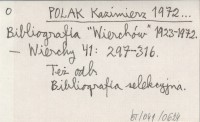 O POLAK Kazimierz 1972...
Bibliografia "Wierchów" 1923-1972.
— Wierchy 41: 297-316.
Też odb.
Bibliografia selekcyjna.